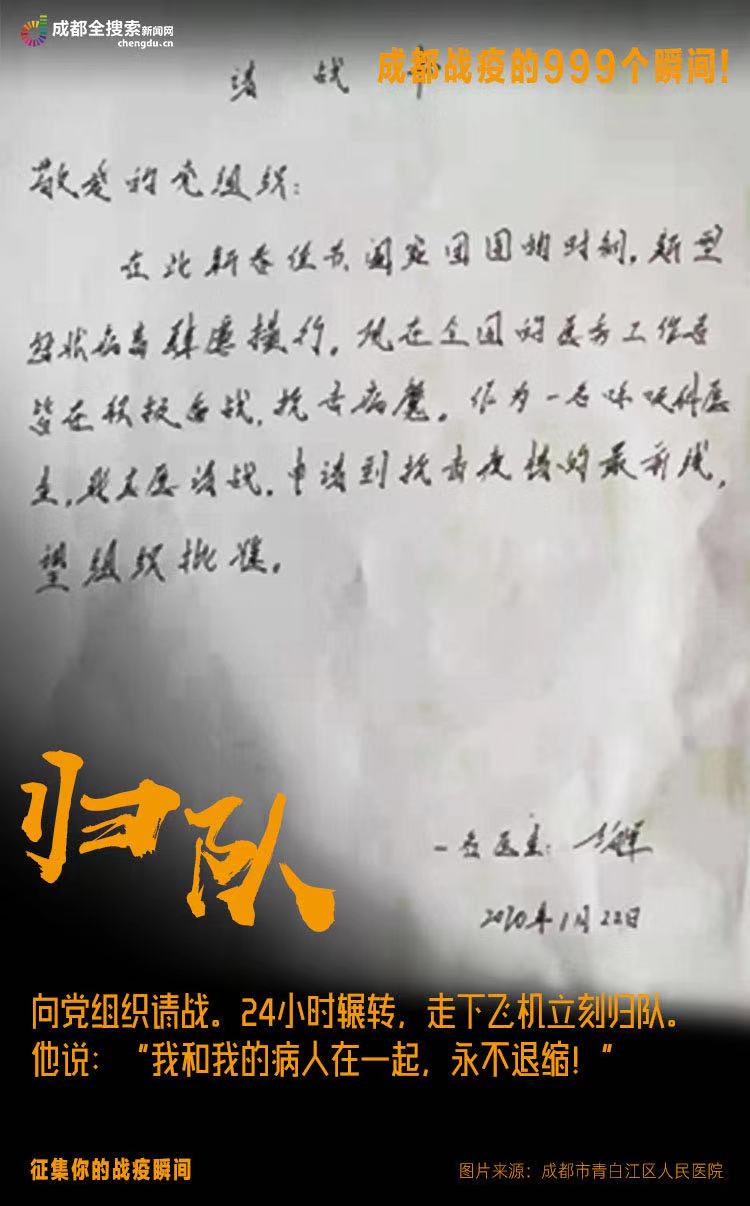 成都全搜索新闻网
chengdu.cn
成都战疫的999个瞬间！
请 战 书
敬爱的党组织：
在此新春佳节、阖家团圆的时刻，新型
冠状病毒肆虐横行。现在全国的医务工作者
皆在积极备战，抗击病魔。作为一名呼吸科医
生，我志愿请战，申请到抗击疫情的最前线，
望组织批准。
一名医生：
2020年1月22日
归队
向党组织请战。24小时辗转，走下飞机立刻归队。
他说：“我和我的病人在一起，永不退缩！”
征集你的战疫瞬间
图片来源：成都市青白江区人民医院